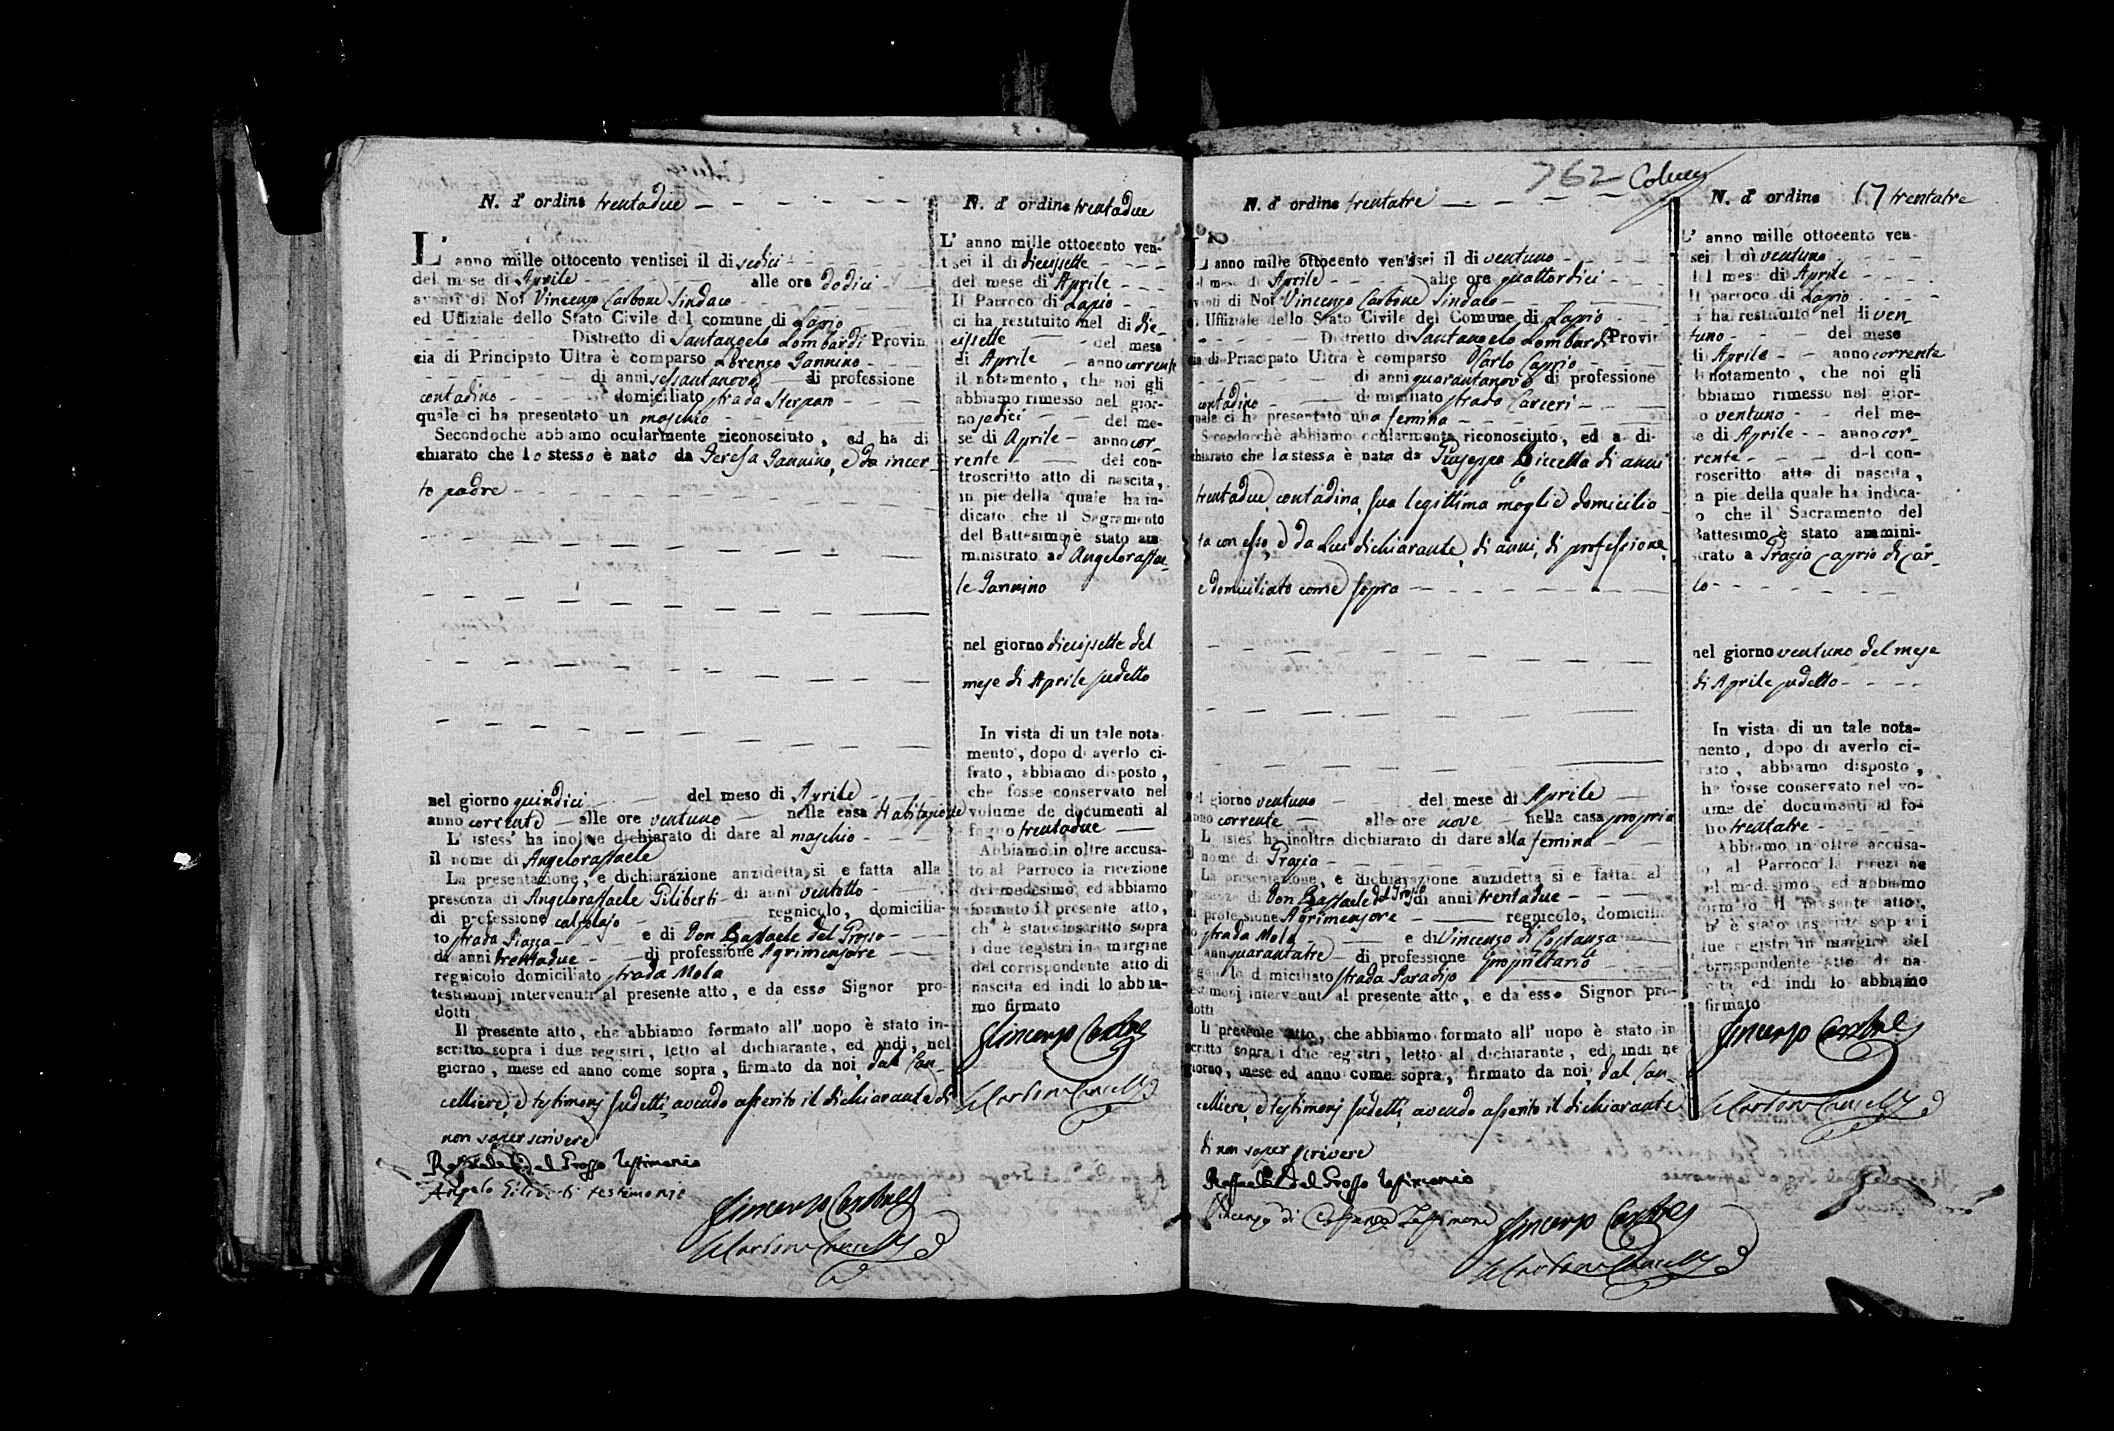 N. d' ordine trentadue
L' anno mille ottocento ventisei il di sedici
del mese di Aprile alle ore dodici
avanti di Noi Vincenzo Carbone Sindaco
ed Uffiziale dello Stato Civile del comune di Lapio
Distretto di Santangelo Lombardi Provin
cia di Principato Ultra è comparso Lorenzo Iannino
di anni sessantanove di professione
contadino domiciliato strada Sterparo
quale ci ha presentato un maschio
Secondochè abbiamo ocularmente riconosciuto, ed ha di
chiarato che lo stesso è nato da Teresa Iannino, e da incer
to padre
nel giorno quindici del mese di Aprile
anno corrente alle ore ventuno nella casa d'abitazione
L' istess' ha inoltre dichiarato di dare al maschio
il nome di Angeloraffaele
La presentazione, e dichiarazione anzidetta si e fatta alla
presenza di Angeloraffaele Giliberti di anni ventotto
di professione calzolajo regnicolo, domicilia-
to strada Piazza e di Don Raffaele del Grosso
di anni trentadue di professione Agrimensore
regnicolo domiciliato strada Mola
testimonj intervenuti al presente atto, e da esso Signor pro-
dotti
Il presente atto, che abbiamo formato all' uopo è stato in-
scritto sopra i due registri, letto al dichiarante, ed indi, nel
giorno, mese ed anno come sopra, firmato da noi, dal Can-
celliere, e testimonj sudetti, avendo asserito il dichiarante di
non saper scrivere
Raffaele del Grosso testimonio
Angelo Giliberti testimonio
Vincenzo Carbone
N. d' ordine trentadue
L' anno mille ottocento ven-
tisei il di diecissette
del mese di Aprile
Il Parroco di Lapio
ci ha restituito nel di die-
cissette del mese
di Aprile anno corrente
il notamento, che noi gli
abbiamo rimesso nel gior-
no sedici del me-
se di Aprile anno cor-
rente del con-
troscritto atto di nascita,
in pie della quale ha in-
dicato che il Sagramento
del Battesimo è stato am-
ministrato ad Angeloraffae-
le Iannino
nel giorno diecissette del
mese di Aprile sudetto
In vista di un tale nota-
mento, dopo di averlo ci-
frato, abbiamo disposto,
che fosse conservato nel
volume de documenti al
fogno trentadue
Abbiamo in oltre accusa-
to al Parroco la ricezione
del medesimo, ed abbiamo
formato il presente atto,
ch' è stato inscritto sopra
i due registri in margine
del corrispondente atto di
nascita ed indi lo abbia-
mo firmato
Vincenzo Carbone
762 Colucci
N. d' ordine trentatre
L' anno mille ottocento ventisei il di ventuno
del mese di Aprile alle ore quattordici
avanti di Noi Vincenzo Carbone Sindaco
ed Uffiziale dello Stato Civile del Comune di Lapio
Distretto di Santangelo Lombardi Provin
cia di Principato Ultra è comparso Carlo Caprio
di anni quarantanove di professione
contadino domiciliato strada Carceri
quale ci ha presentato una femina
Secondochè abbiamo ocularmente riconosciuto, ed a di-
chiarato che la stessa è nata da Giuseppa Biccella di anni
trentadue, contadina, sua legittima moglie domicilia-
ta con esso, e da Lui dichiarante, di anni, di professione,
e domiciliato come sopra
nel giorno ventuno del mese di Aprile
anno corrente alle ore nove nella casa propria
L' istes' ha inoltre dichiarato di dare alla femina
il nome di Grazia
La presentazione, e dichiarazione anzidetta si e fatta al
presenza di Don Raffaele del Grosso di anni trentadue
di professione Agrimensore regnicolo, domicilia
to strada Mola e di Vincenzo di Costanza
di anni quarantatre di professione Proprietario
regnicolo domiciliato strada Paradiso
testimonj intervenuti al presente atto, e da esso Signor pro-
dotti
Il presente atto, che abbiamo formato all' uopo è stato in
scritto sopra i due registri, letto al dichiarante, ed indi ne
giorno, mese ed anno come sopra, firmato da noi, dal Can-
celliere, e testimonj sudetti, avendo asserito il dichiarante
di non saper scrivere
Raffaele del Grosso testimonio
Vincenzo di Costanza testimonio
Vincenzo Carbone
N. d' ordine 17 trentatre
L' anno mille ottocento ven-
sei il di ventuno
del mese di Aprile
Il parroco di Lapio
ci ha restituito nel di ven-
tuno del mese
di Aprile anno corrente
il notamento, che noi gli
abbiamo rimesso nel gior-
no ventuno del me-
se di Aprile anno cor-
rente del con-
troscritto atto di nascita,
in pie della quale ha indica-
to che il Sacramento del
Battesimo è stato ammini-
strato a Grazia Caprio di Car-
lo
nel giorno ventuno del mese
di Aprile sudetto
In vista di un tale nota-
mento, dopo di averlo ci-
frato, abbiamo disposto,
che fosse conservato nel vo-
lume de' documenti al fo-
lio trentatre
Abbiamo in oltre accusa-
to al Parroco la ricezione
del medesimo, ed abbiamo
formato il presente atto,
ch' è stato inscritto sopra i
due registri in margine del
corrispondente atto di na-
scita, ed indi lo abbiamo
firmato
Vincenzo Carbone